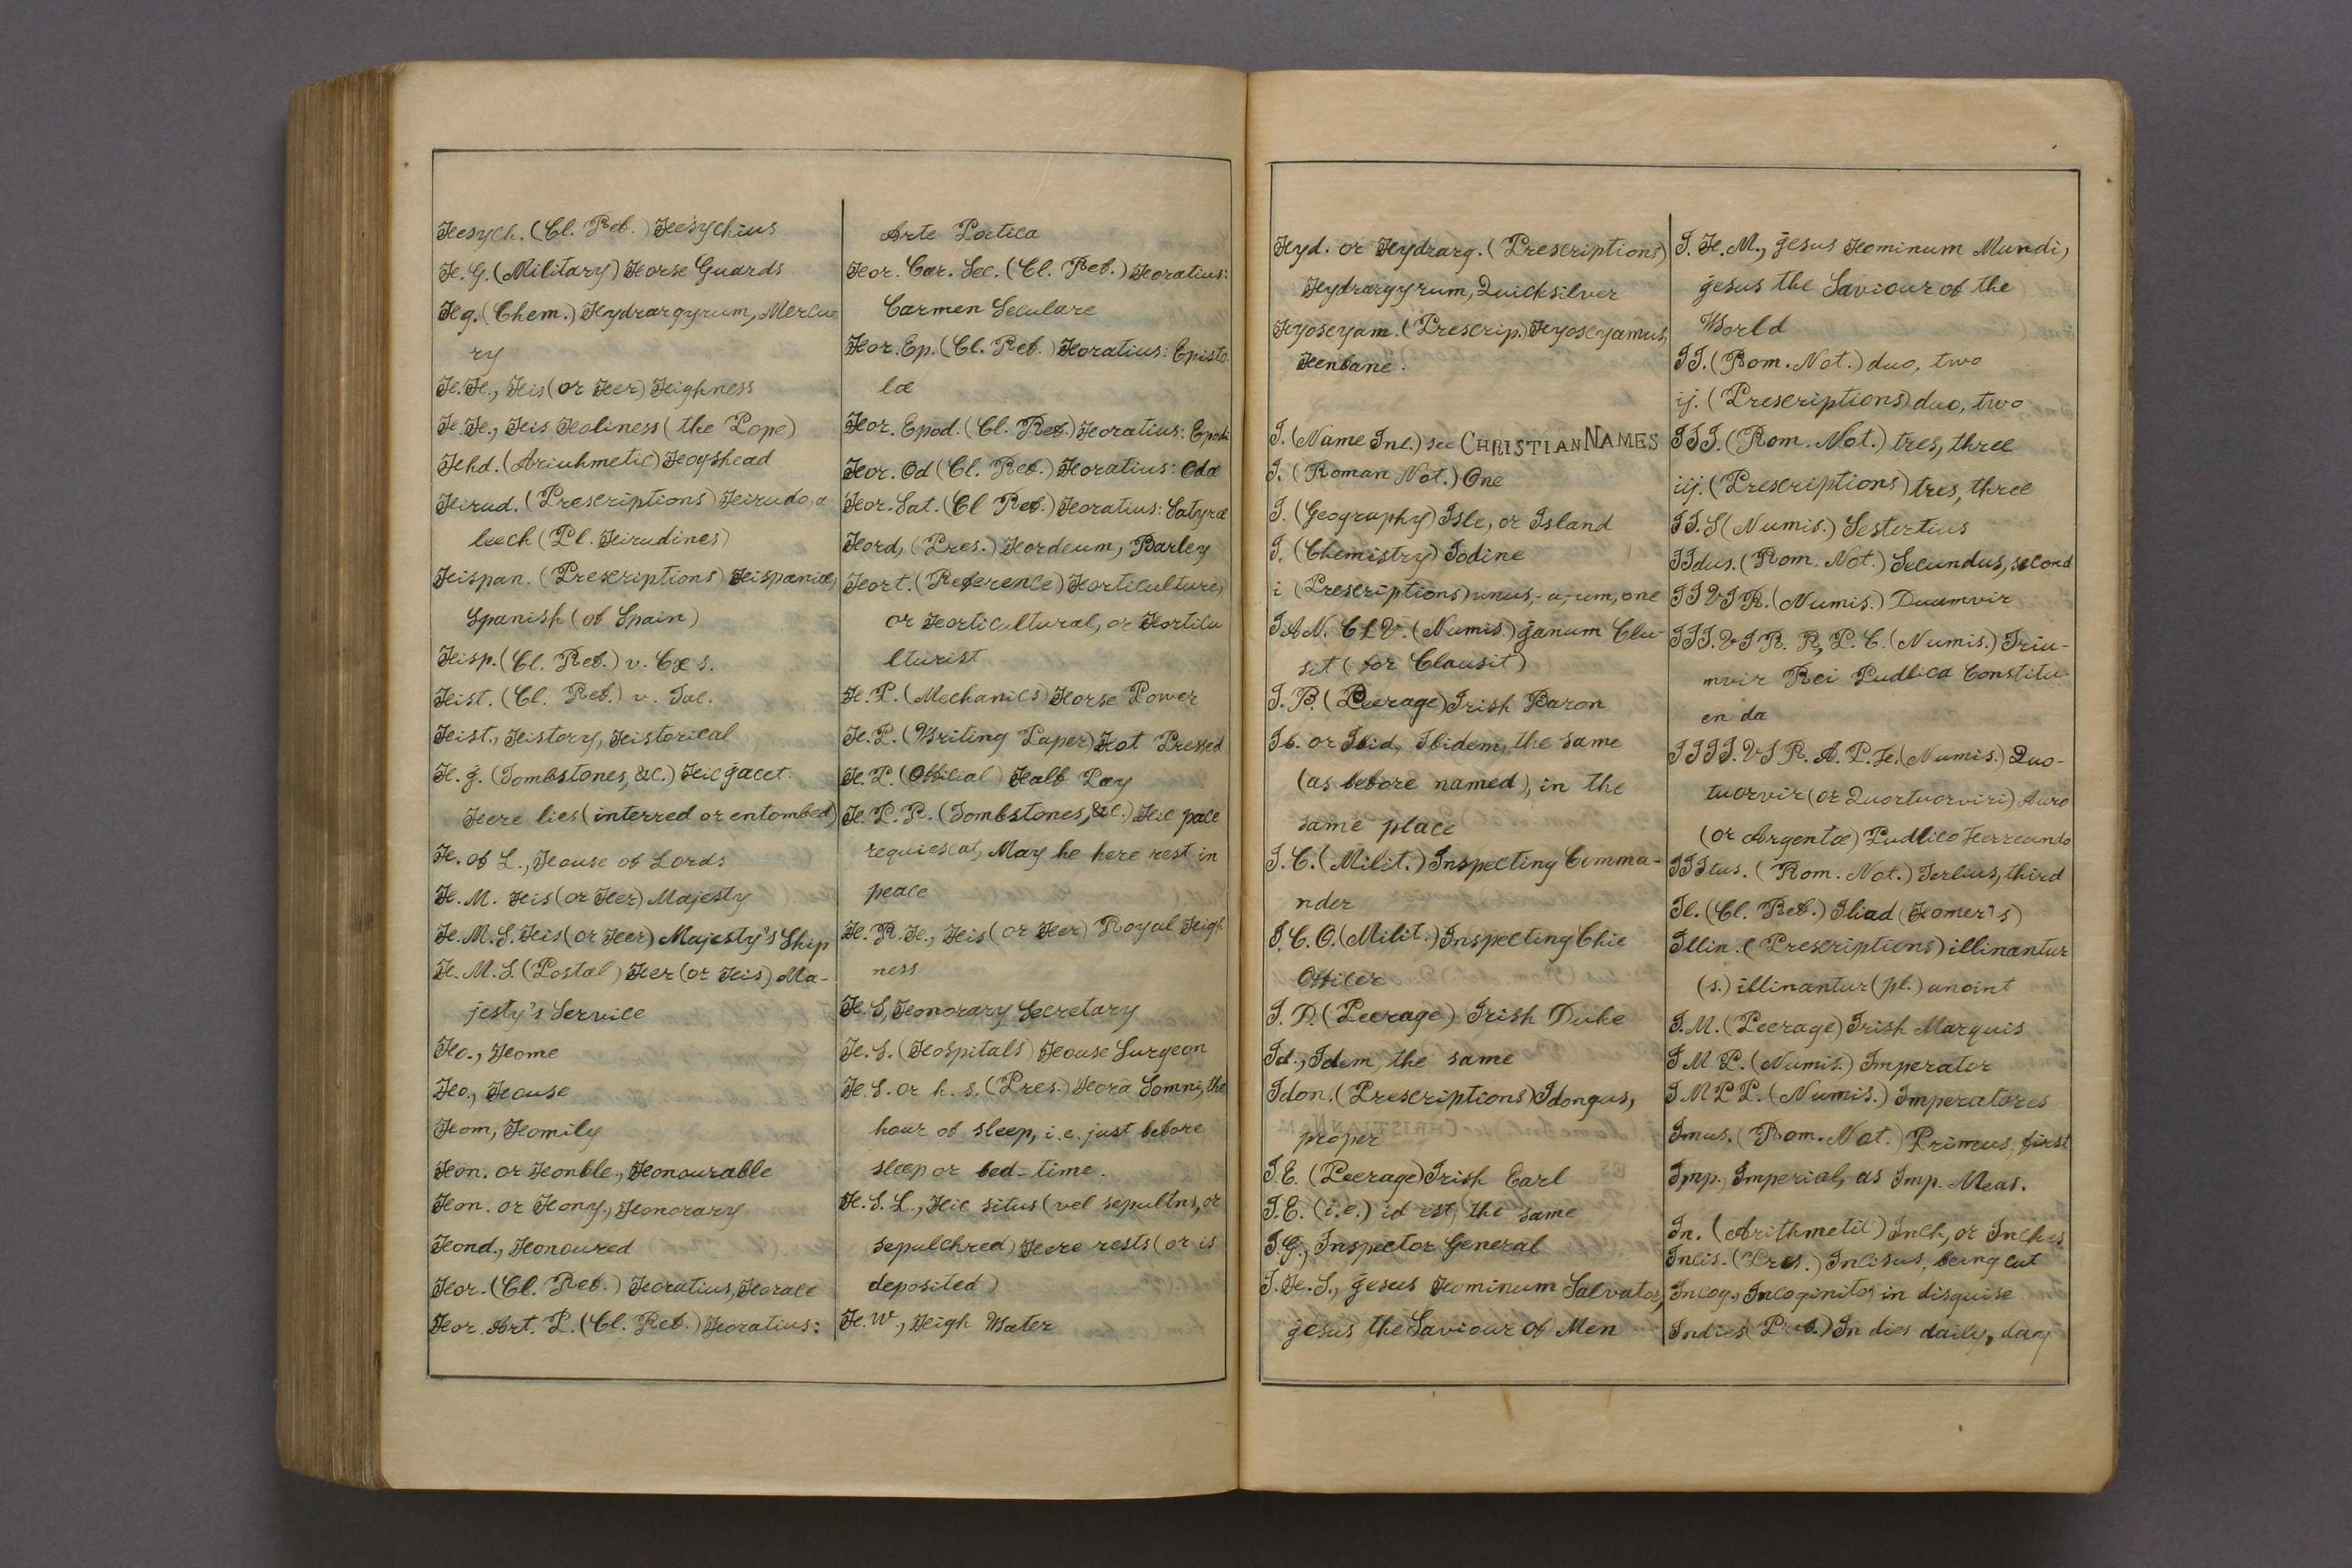 Hesych. (Cl. Ref.) Hesychius
H. G. (Military) Horse Guards
Hg. (Chem.) Hydrargyrum, Mercu-
ry
H. H., His (or Her) Highness
H. H., His Holiness (the Pope)
Hhd. (Ariuhmetic) Hogshead
Hirud. (Prescriptions) Hirudo, a
leech (Pl. Hirudines)
Hispan. (Prescriptions) Hispaniæ,
Spanish (of Spain)
Hisp. (Cl. Ref.) v. Cæs.
Hist. (Cl. Ref.) v. Tac.
Hist., History, Historical
H. J. (Tombstones, &c.) Hic Jacet.
Here lies (interred or entombed)
H. of L., House of Lords
H. M. His (or Her) Majesty
H. M. S. His (or Her) Majesty's Ship
H. M. S. (Postal) Her (or His) Ma-
jesty's Service
Ho., Home
Ho., House
Hom, Homily
Hon. or Honble., Honourable
Hon. or Hony., Honorary
Hond., Honoured
Hor. (Cl. Ref.) Horatius, Horace
Hor. Art. P. (Cl. Ref.) Horatius:
Arte Poetica
Hor. Car. Sec. (Cl. Ref.) Horatius:
Carmen Seculare
Hor. Ep. (Cl. Ref.) Horatius: Episto
læ
Hor. Epod. (Cl. Ref.) Horatius:
Hor. Od (Cl. Ref.) Horatius: Odæ
Hor. Sat. (Cl Ref.) Horatius: Satyræ
Hord, (Pres.) Hordeum, Barley
Hort. (Reference) Horticulture,
or Horticultural, or Horticu
lturist
H. P. (Mechanics) Horse Power
H. P. (Writing Paper) Hot Pressed
H. P. (Official) Half Pay
H. P. R. (Tombstones, &c.) Hic pace
requiescat, May he here rest in
peace
H. R. H., His (or Her) Royal High
ness
H. S, Honorary Secretary
H. S. (Hospitals) House Surgeon
H. S. or h. s. (Pres.) Horâ Somni, the
hour of sleep, i.e. just before
sleep or bed-time.
H. S. L., Hic situs (vel sepultns, or
sepulchred) Here rests (or is
deposited)
H. W., High Water
Hyd. or Hydrarg. (Prescriptions)
Hydrargyrum, Quicksilver
Hyoscyam. (Prescrip.) Hyoscyamus,
Henbane.
I. (Name Inl.) see CHRISTIAN NAMES
I. (Roman Not.) One
I. (Geography) Isle, or Island
I. (Chemistry) Iodine
i (Prescriptions) unus, -a, -um, one
IAN. CLV. (Numis.) Janum Clu-
sit (for Clausit)
I. B. (Peerage) Irish Baron
Ib. or Ibid, Ibidem, the same
(as before named), in the
same place
I. C. (Milit.) Inspecting Comma-
nder
I. C. O. (Milit.) Inspecting Chie
Officer
I. D. (Peerage) Irish Duke
Id., Idem, the same
Idon. (Prescriptions) Idongus,
proper
I. E. (Peerage) Irish Earl
I. E. (i.e.) id est, the same
I. G., Inspector General
I. H. S., Jesus Hominum Salvator,
Jesus the Saviour of Men
I. H. M., Jesus Hominum Mundi,
Jesus the Saviour of the
World
II. (Rom. Not.) duo, two
ij. (Prescriptions) duo, two
III. (Rom. Not.) tres, three
iij. (Prescriptions) tres, three
II. S (Numis.) Sestertius
IIdus. (Rom. Not.) Secundus, second
IIVIR. (Numis.) Duumvir
III. VIR. R, P. C. (Numis.) Triu-
mvir Rei Pudlica Constitu-
en da
IIII. VIR. A. P. H. (Numis.) Quo-
tuorvir (or Quortuorviri) Auro
(or Argentæ) Pudlico Herreundo
IIItus. (Rom. Not.) Terlius, third
Il. (Cl. Ref.) Iliad (Homer's)
Illin. (Prescriptions) illinantur
(s.) illinantur (pl.) anoint
I. M. (Peerage) Irish Marquis
I M P. (Numis.) Imperator
I M P P. (Numis.) Imperatores
Imus. (Rom. Not.) Primus, first
Imp., Imperial, as Imp. Meas.
In. (Arithmetic) Inch, or Inches
Incis. (Pres.) Incisus, being cut
Incog., Incoginito, in disguise
Indies In dies daily, day